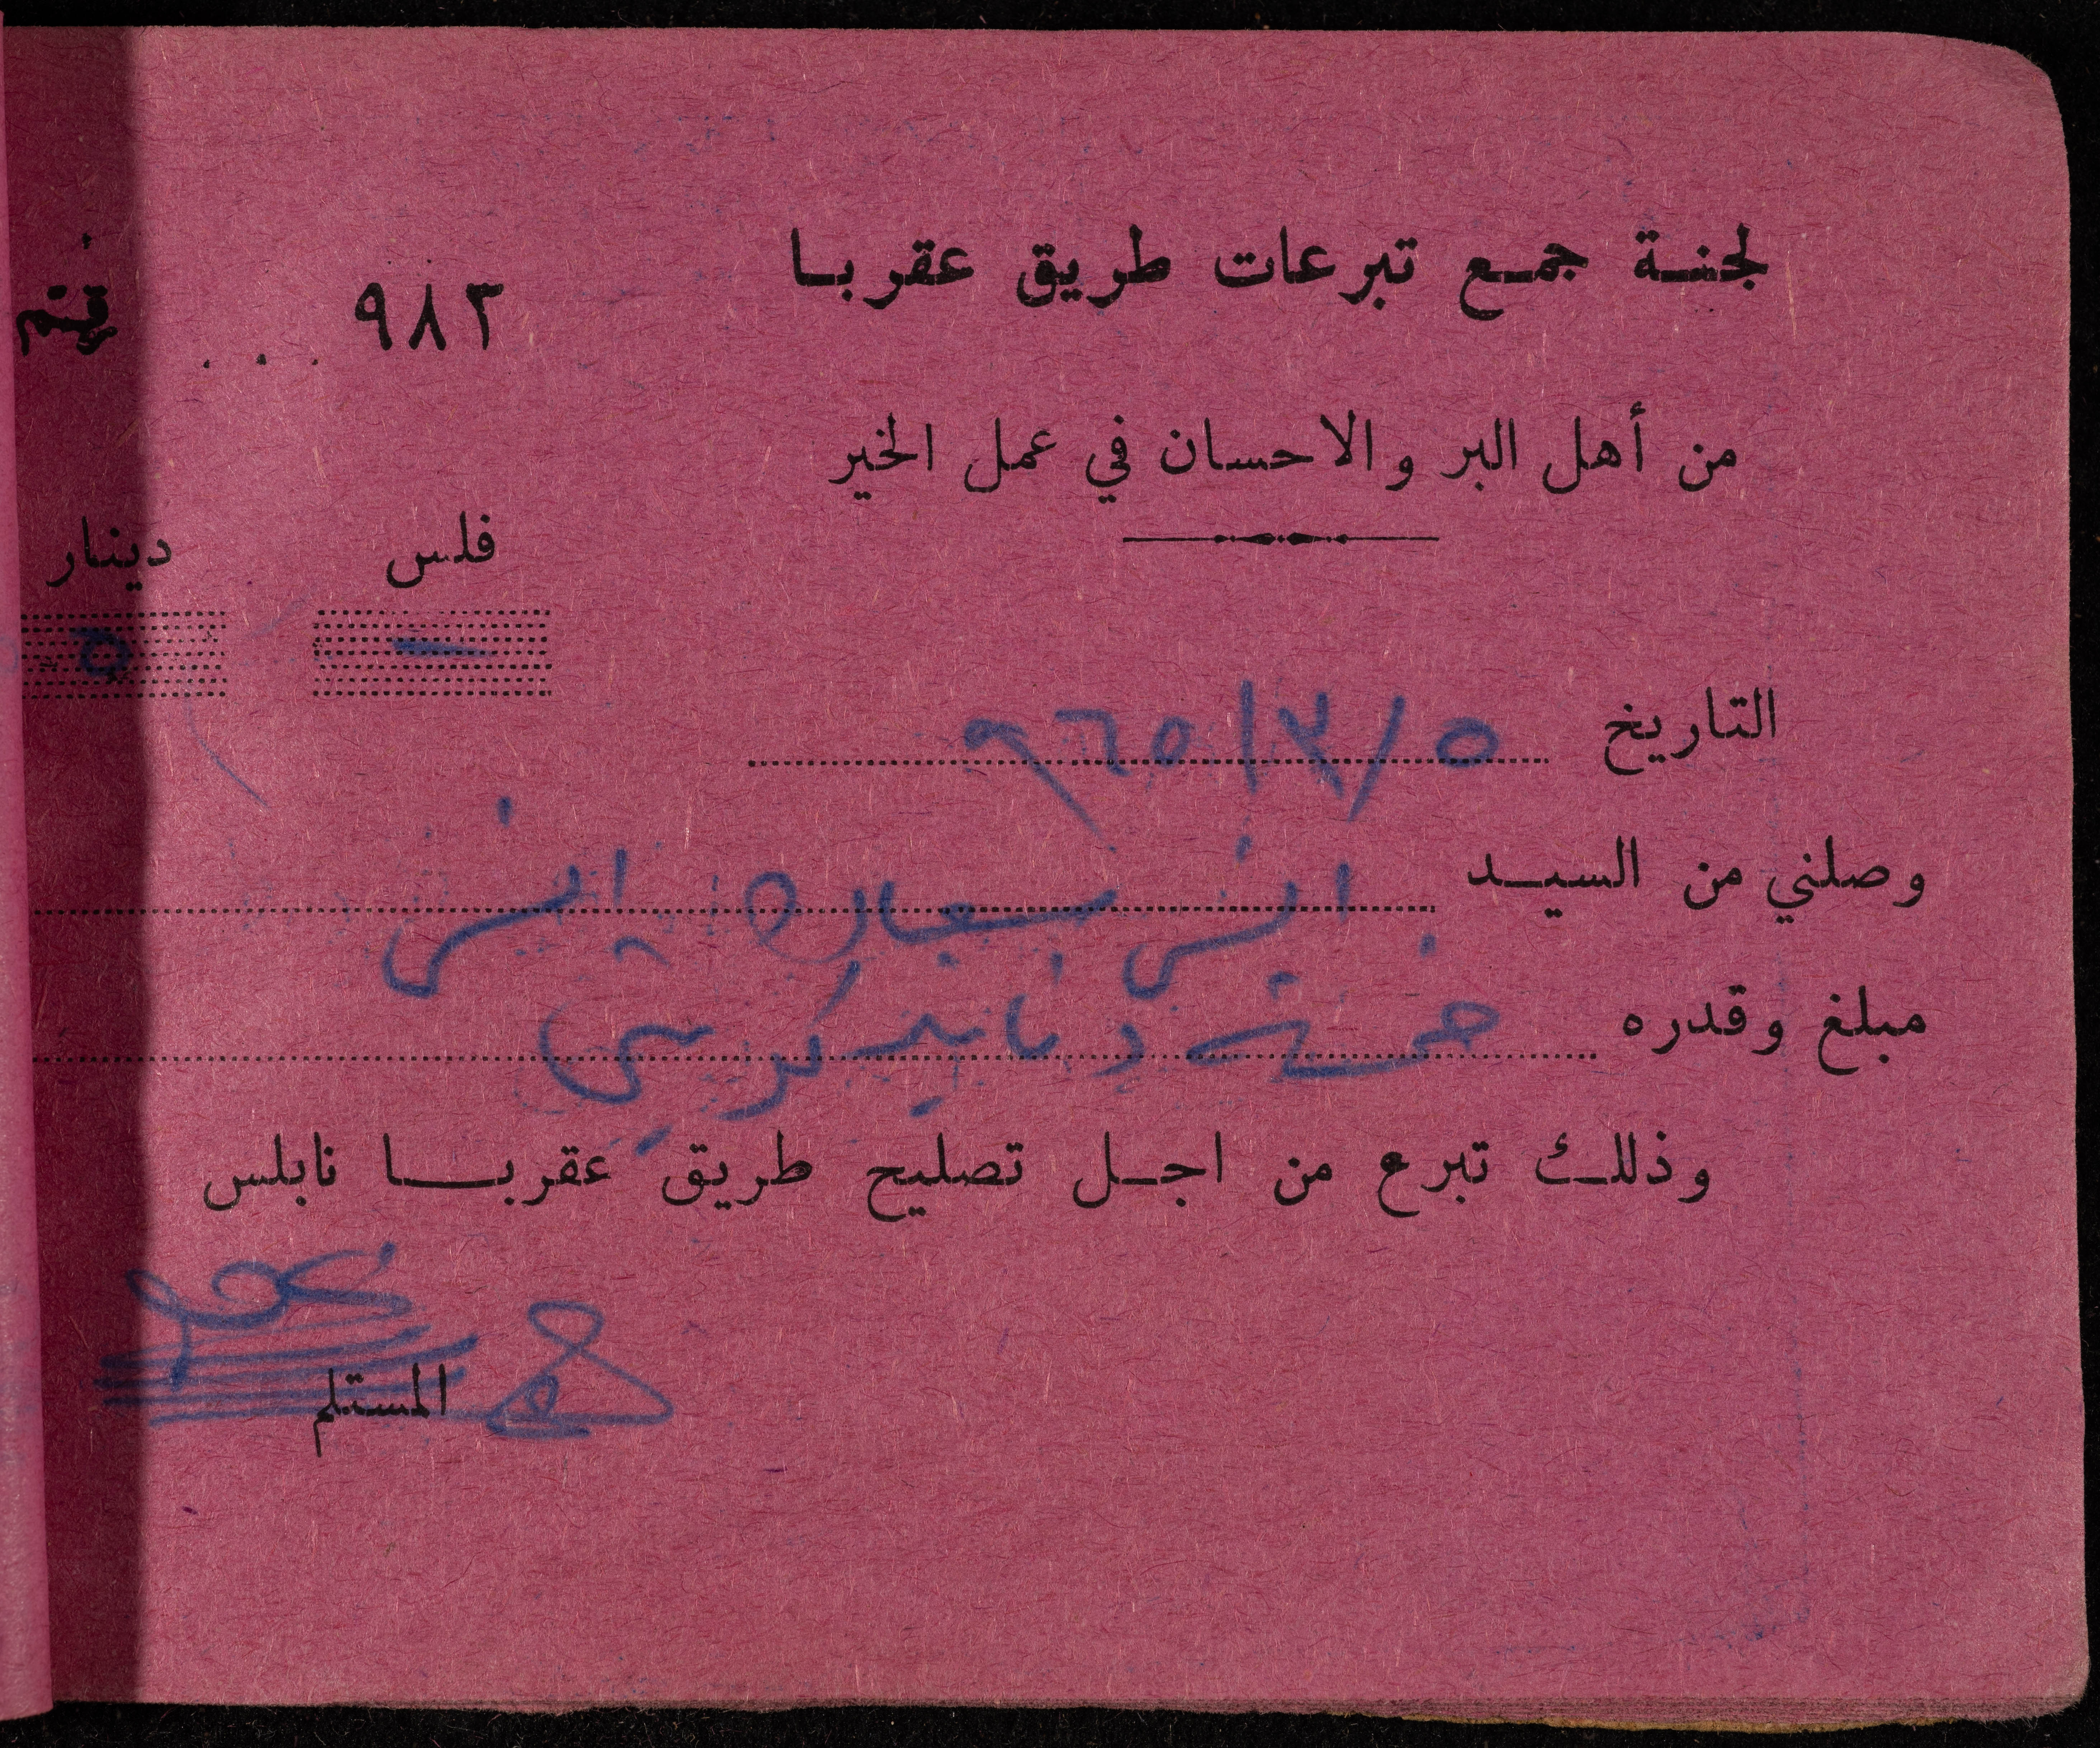 لجنة جمع تبرعات طريق عقربا
٩٨٣
من أهل البر والاحسان في عمل الخير
فلس دينار
- ٥
التاريخ ٥/٣/٩٦٥
وصلني من السيد
مبلغ وقدره خمسة دنانير
وذلك تبرع من اجل تصليح طريق عقربا نابلس
المستلم